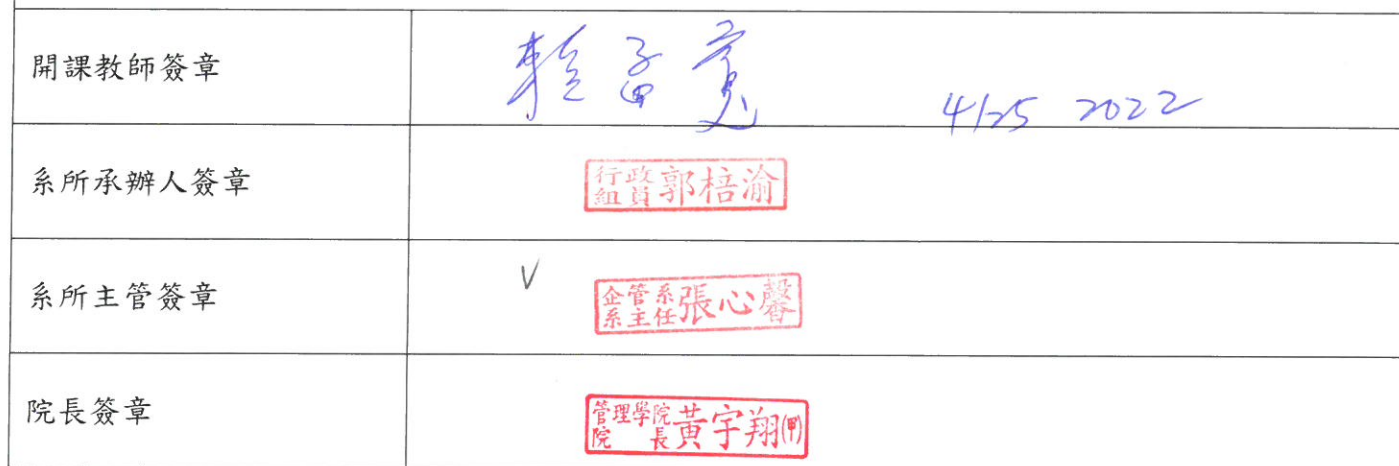 開課教師簽章
賴孟寬 4/25 2022
系所承辦人簽章
行政組員 郭棓渝
系所主管簽章
V
企管系系主任 張心馨
院長簽章
管理學院院長 黃宇翔(甲)